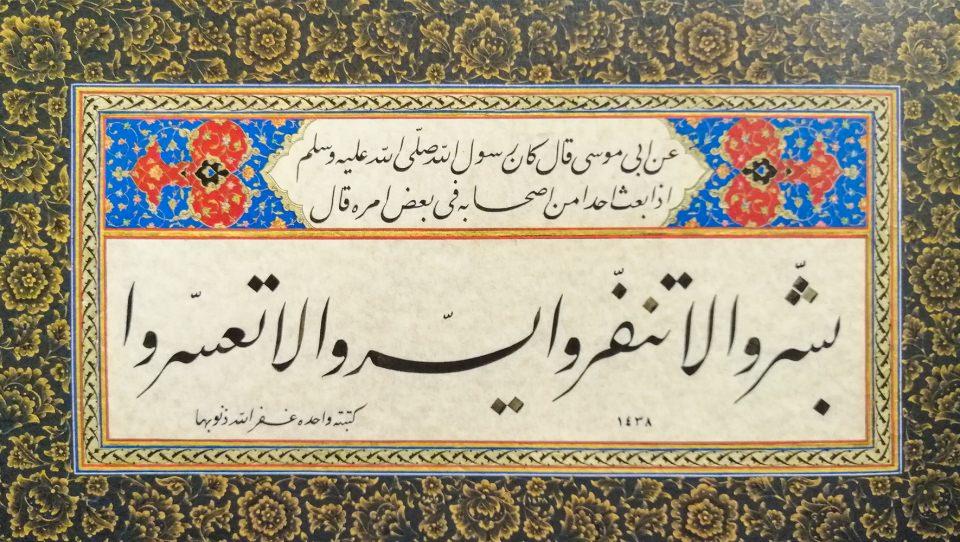 عن ابى موسى قال كان رسول الله صلّى الله عليه وسلم
اذا بعث احدا من اصحابه فى بعض امره قال
بشّروا لا تنفّروا يسّروا لا تعسّروا
كتبته واحده غفر الله ذنوبها
١٤٣٨